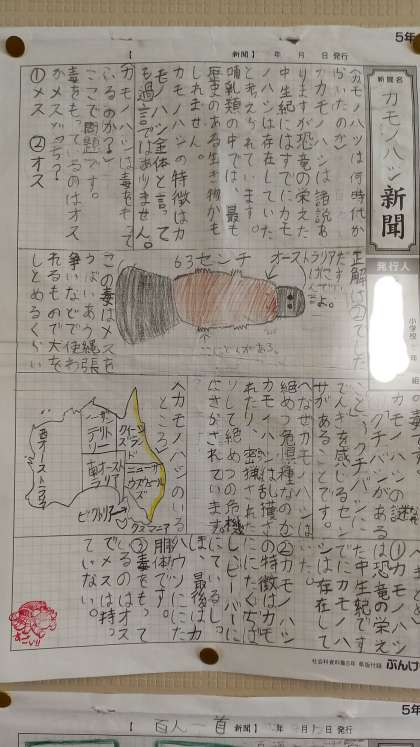 5年
【 新聞】 年 月 日発行
新聞名
カモノハシ新聞
発行人
小学校 年 組
〈カモノハシは何時代か
らいたのか〉
カモノハシは諸説あ
りますが恐竜の栄えた
中生紀にはすでにカモ
ノハシは存在していた
と考えられています。
哺乳類の中では、最も
歴史のある生き物かも
しれません。
カモノハシの特徴はカ
モノハシ全体と言って
も過言ではありません。
〈カモノハシは毒をもって
いるのか?〉
ここで問題です。
毒をもってるのはオス
かメスどっち?
①メス ②オス
正解は②でした
オーストラリアで
だよ。
63センチ
この毒はメスを
うばいあう縄張
争いなどで使わ
れるもので犬を
しとめるくらい
カモノハシの謎
①カモノハシ
クチバシがある
は恐竜の栄え
こと クチバシに
た中生紀です
でんきを感じるセン
でにカモノハ
サがあることです。
シは存在して
〈なぜカモノハシは
いた。
絶めつ危惧種なのか〉
②カモノハシ
カモノハシは乱獲さ
の特徴はカモ
れたり、密猟された
ににたくちば
りして絶めつの危機
し、ビーバーに
にさらされています。
にているしっ
〈カモノハシのいる
ぽ、最後はカ
ところ〉
ワウソににた
胴体です。
③毒をもって
いるのはオス
でメスは持っ
ていない。
西オーストラリア
ノーザンテリトリー
南オーストラリア
クイーンズランド
ニューサウスウェールズ
ビクトリア
タスマニア
すご〜い!!
社会科資料集5年 県版付録 ぶんけ
5年
【 百人一首 新聞】 年 月 日発行